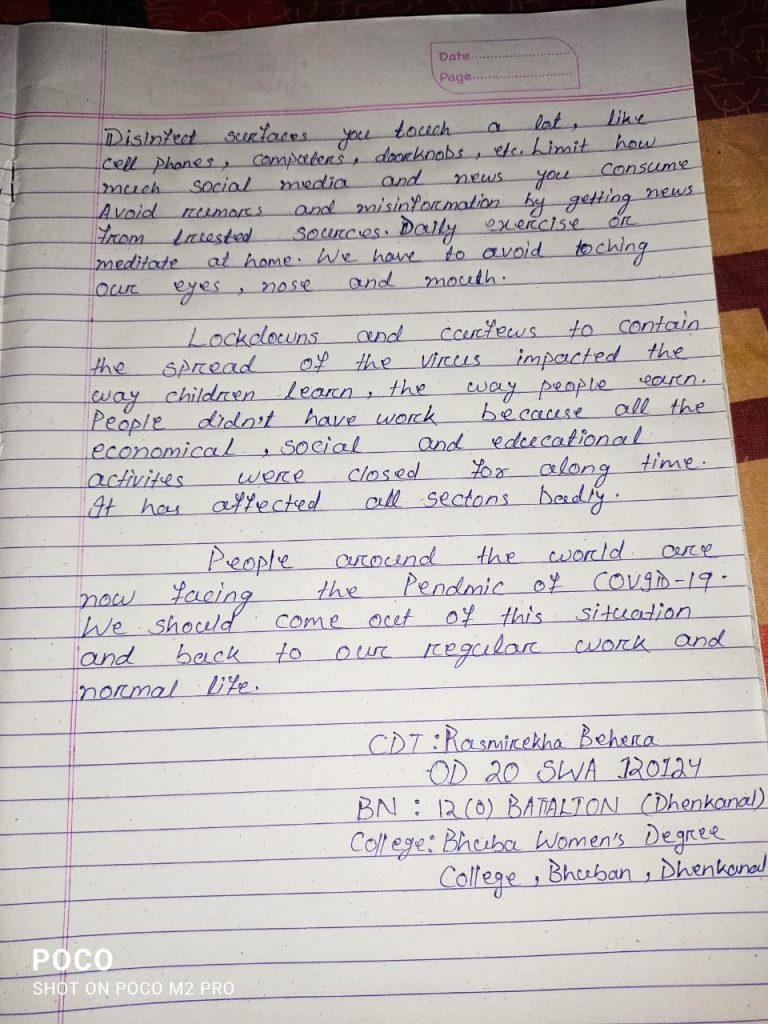 Date
Page
Disinfect surfaces you touch a lot, like
cell phones, computers, doorknobs, etc. Limit how
much social media and news you consume
Avoid rumors and misinformation by getting news
from trusted sources. Daily exercise or
meditate at home. We have to avoid toching
our eyes, nose and mouth.
Lockdowns and curfews to contain
the spread of the virus impacted the
way children learn, the way people earn.
People didn't have work because all the
economical, social and educational
activites were closed for along time.
It has affected all sectons badly.
People around the world are
now facing the Pendmic of COVID-19.
We should come out of this situation
and back to our regular work and
normal life.
CDT : Rasmirekha Behera
OD 20 SWA 120124
BN : 12(O) BATALION (Dhenkanal)
College: Bhuba Women's Degree
College, Bhuban, Dhenkanal
POCO
SHOT ON POCO M2 PRO